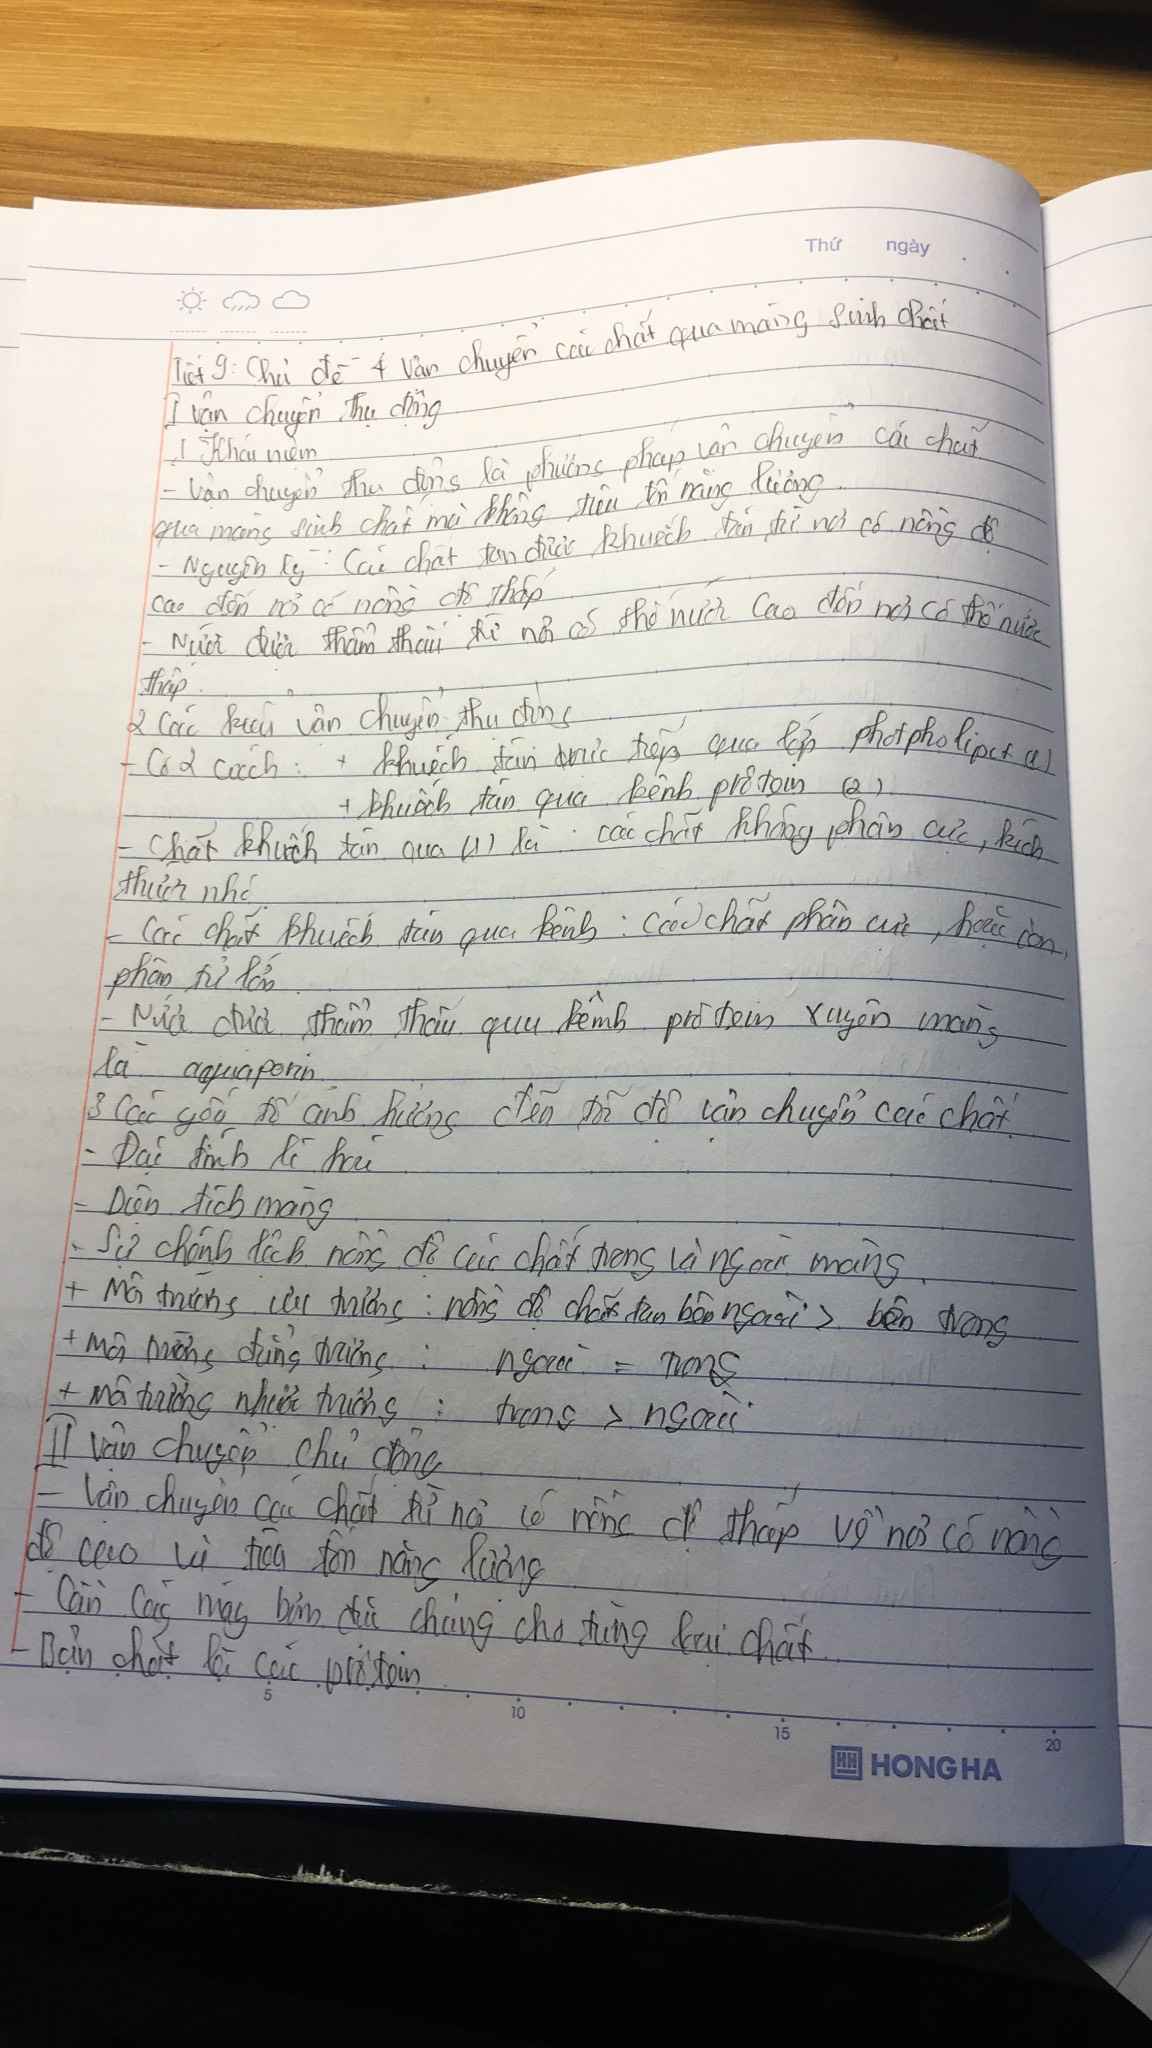 Thứ ngày
Tiết 9: Chủ đề 4 Vận chuyển các chất qua màng sinh chất
I Vận chuyển thụ động
1 Khái niệm
- Vận chuyển thụ động là phương pháp vận chuyển các chất
qua màng sinh chất mà không tiêu tốn năng lượng.
- Nguyên lý: Các chất tan được khuếch tán từ nơi có nồng độ
cao đến nơi có nồng độ thấp
- Nước được thẩm thấu từ nơi có thế nước cao đến nơi có thế nước
thấp.
2 Các kiểu vận chuyển thụ động
- Có 2 cách: + khuếch tán trực tiếp qua lớp photpholipit (1)
+ khuếch tán qua kênh prôtein (2)
- Chất khuếch tán qua (1) là: các chất không phân cực, kích
thước nhỏ.
- Các chất khuếch tán qua kênh: các chất phân cực, hoặc ion,
phân tử lớn
- Nước được thẩm thấu qua kênh prôtein xuyên màng
là aquaporin.
3 Các yếu tố ảnh hưởng đến tốc độ vận chuyển các chất.
- Đặc tính lí hoá
- Diện tích màng
- Sự chênh lệch nồng độ các chất trong và ngoài màng.
+ Môi trường ưu trương: nồng độ chất tan bên ngoài > bên trong
+ Môi trường đẳng trương: ngoài = trong
+ Môi trường nhược trương: trong > ngoài
II Vận chuyển chủ động
- Vận chuyển các chất từ nơi có nồng độ thấp về nơi có nồng
độ cao và tiêu tốn năng lượng
- Cần các máy bơm đặc chủng cho từng loại chất
- Bản chất là các prôtein
5 10 15 20
HH HONG HA